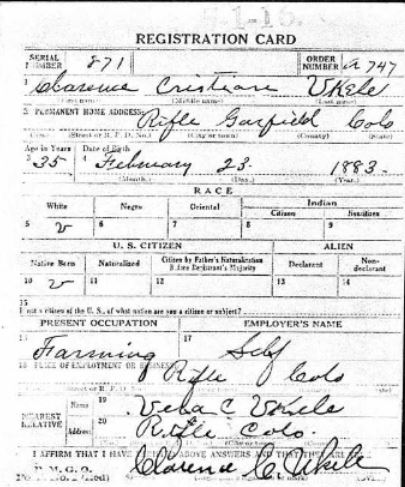 9-1-16.
REGISTRATION CARD
SERIAL NUMBER 871 ORDER NUMBER A 747
1 Clarence Cristian Ukele
(First name) (Middle name) (Last name)
2 PERMANENT HOME ADDRESS:
Rifle Garfield Colo
(No.) (Street or R. F. D. No.) (City or town) (County) (State)
Age in Years Date of Birth
3 35 4 February 23 1883.
(Month.) (Day.) (Year.)
RACE
White Negro Oriental Indian
Citizen Noncitizen
5 v 6 7 8 9
U. S. CITIZEN ALIEN
Native Born Naturalized Citizen by Father's Naturalization Before Registrant's Majority Declarant Non-declarant
10 v 11 12 13 14
15
If not a citizen of the U. S., of what nation are you a citizen or subject?
PRESENT OCCUPATION EMPLOYER'S NAME
16 Farming 17 Self
18 PLACE OF EMPLOYMENT OR BUSINESS:
Rifle Colo
NEAREST RELATIVE Name 19 Veba C Ukele
Address 20 Rifle Colo.
I AFFIRM THAT I HAVE ABOVE ANSWERS AND THAT THEY ARE
P. M. G. O.
Clarence C. Ukele